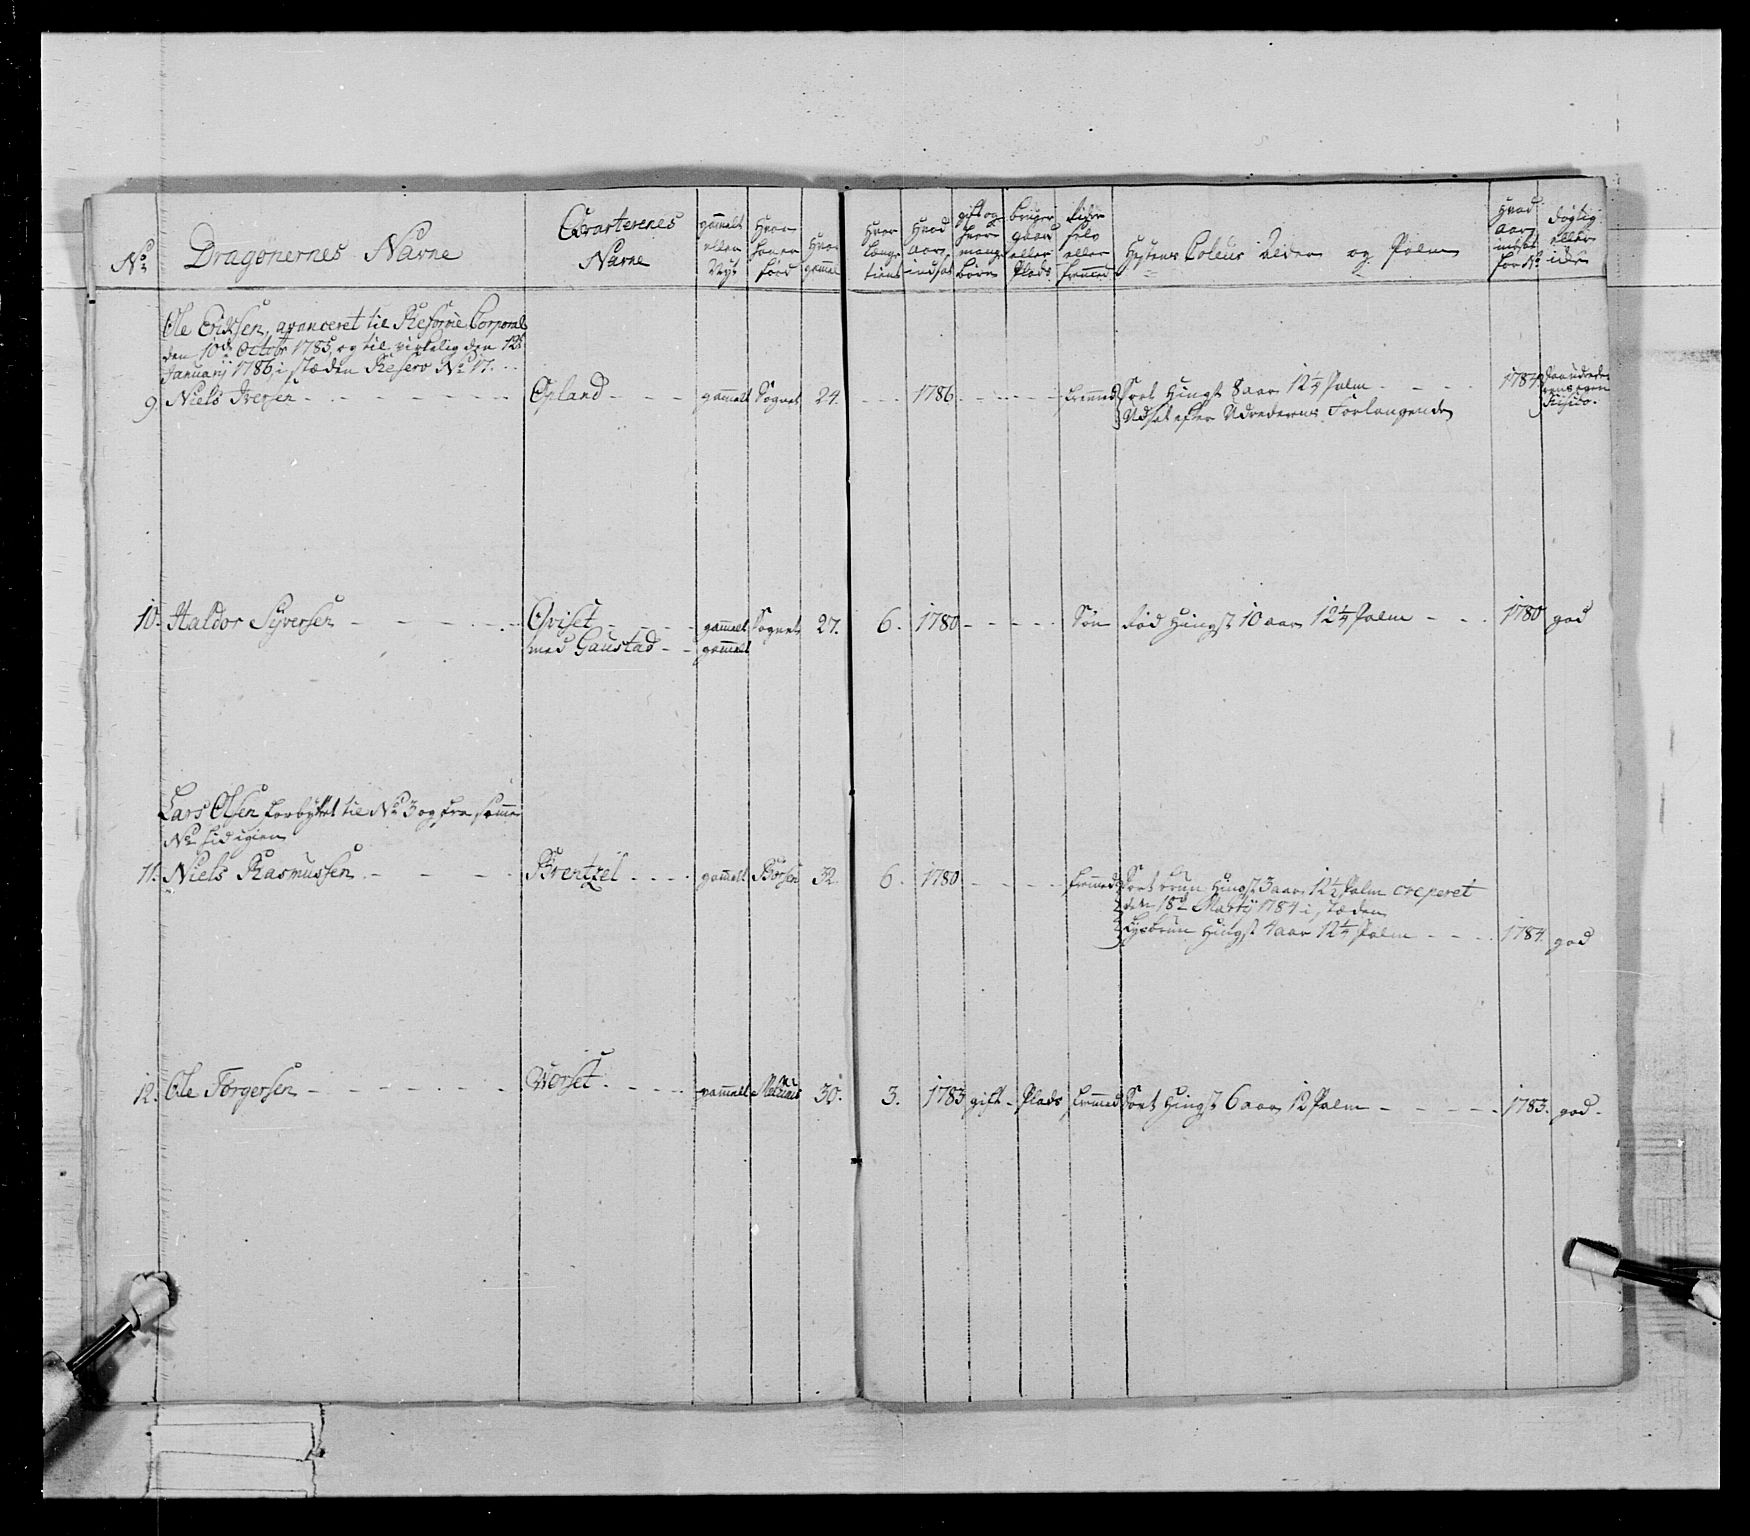 No
Dragonernes Navne
Qvarterenes Navne
gammelt eller Nyt
Hvor
Hvor gammel
Hvor lange tient
Hvad aar indsat
gift og hvor mange børn
bruger gaard eller Plads
Rider selv eller fremmed
Hestens Coleur Alder og Palm
Hvad aar indsat for No
døgtig eller icke
Ole Eriksen, avanceret til Reforme Corporal
den 10de Octobr 1785, og til virkelig den 12te
January 1786, i stæden Reserv No 17.
9. Niels Iversen Opland gammelt Sognet 24. 1786 fremmed Sort Hingst 8 aar 12¼ Palm 1784
Udsat efter Udrederens Forlangende
Risico.
10. Haldor Syversen Qviset gammelt Sognet 27. 6. 1780 Søn Rød Hingst 10 aar 12¼ Palm 1780 god
med Gaustad gammelt
Lars Olsen forbyttet til No 3 og fra samme
No hid igien
11. Niels Rasmussen Brentzel gammelt Børsen 32. 6. 1780 fremmed Sort brun Hingst 3 aar 12¼ Palm creperet
den 18de Marty 1784 i stæden
Lysbrun Hingst 4 aar 12¼ Palm 1784. god
12. Ole Torgersen Worset gammelt 30. 3. 1783 gift Plads fremmed Sort Hingst 6 aar 12 Palm 1783. god